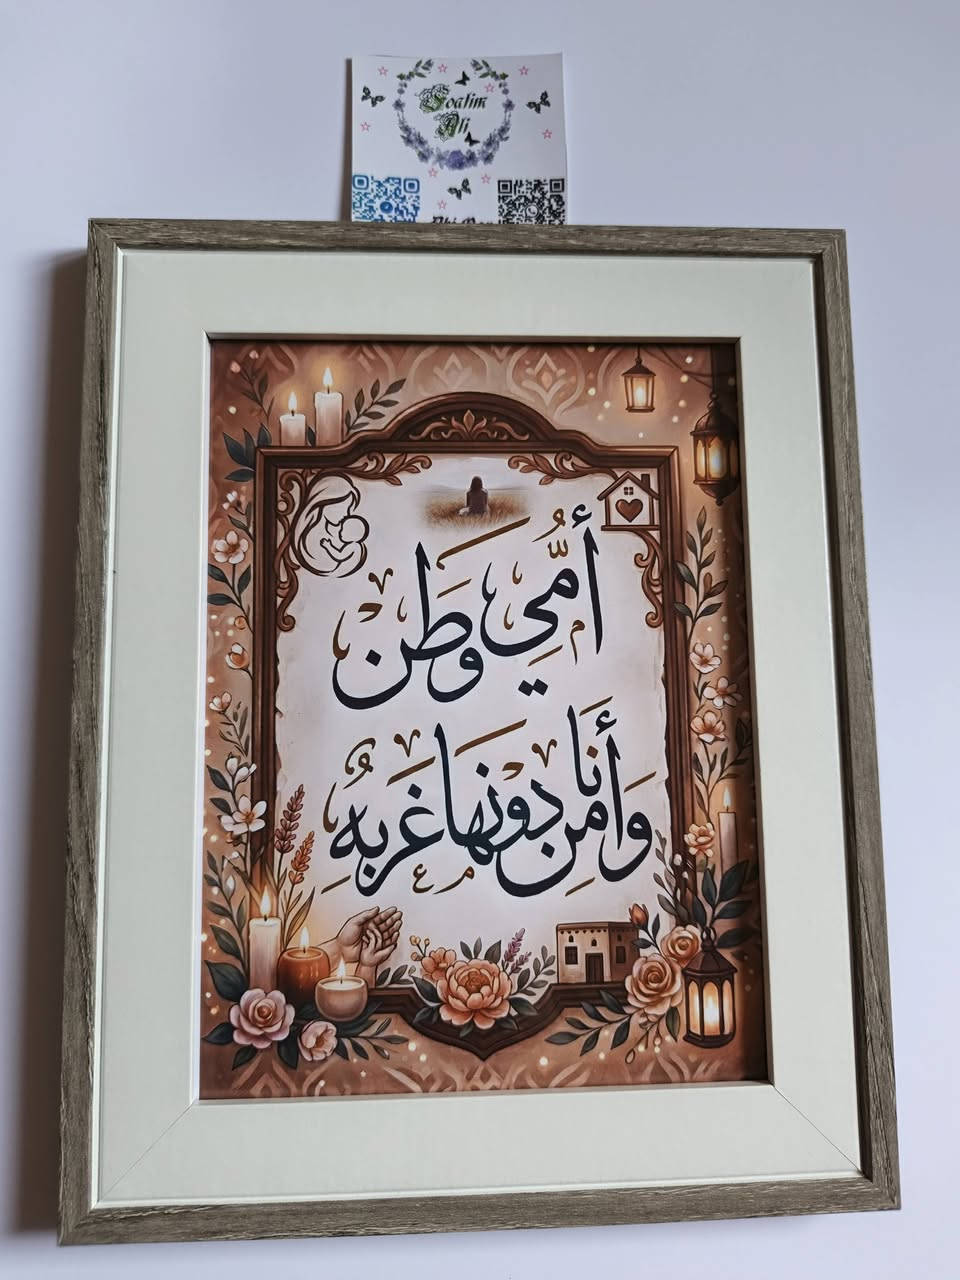 Soalim
Ali
أُمِّي وَطن
وَأنَا مِن دونها غَربهُ